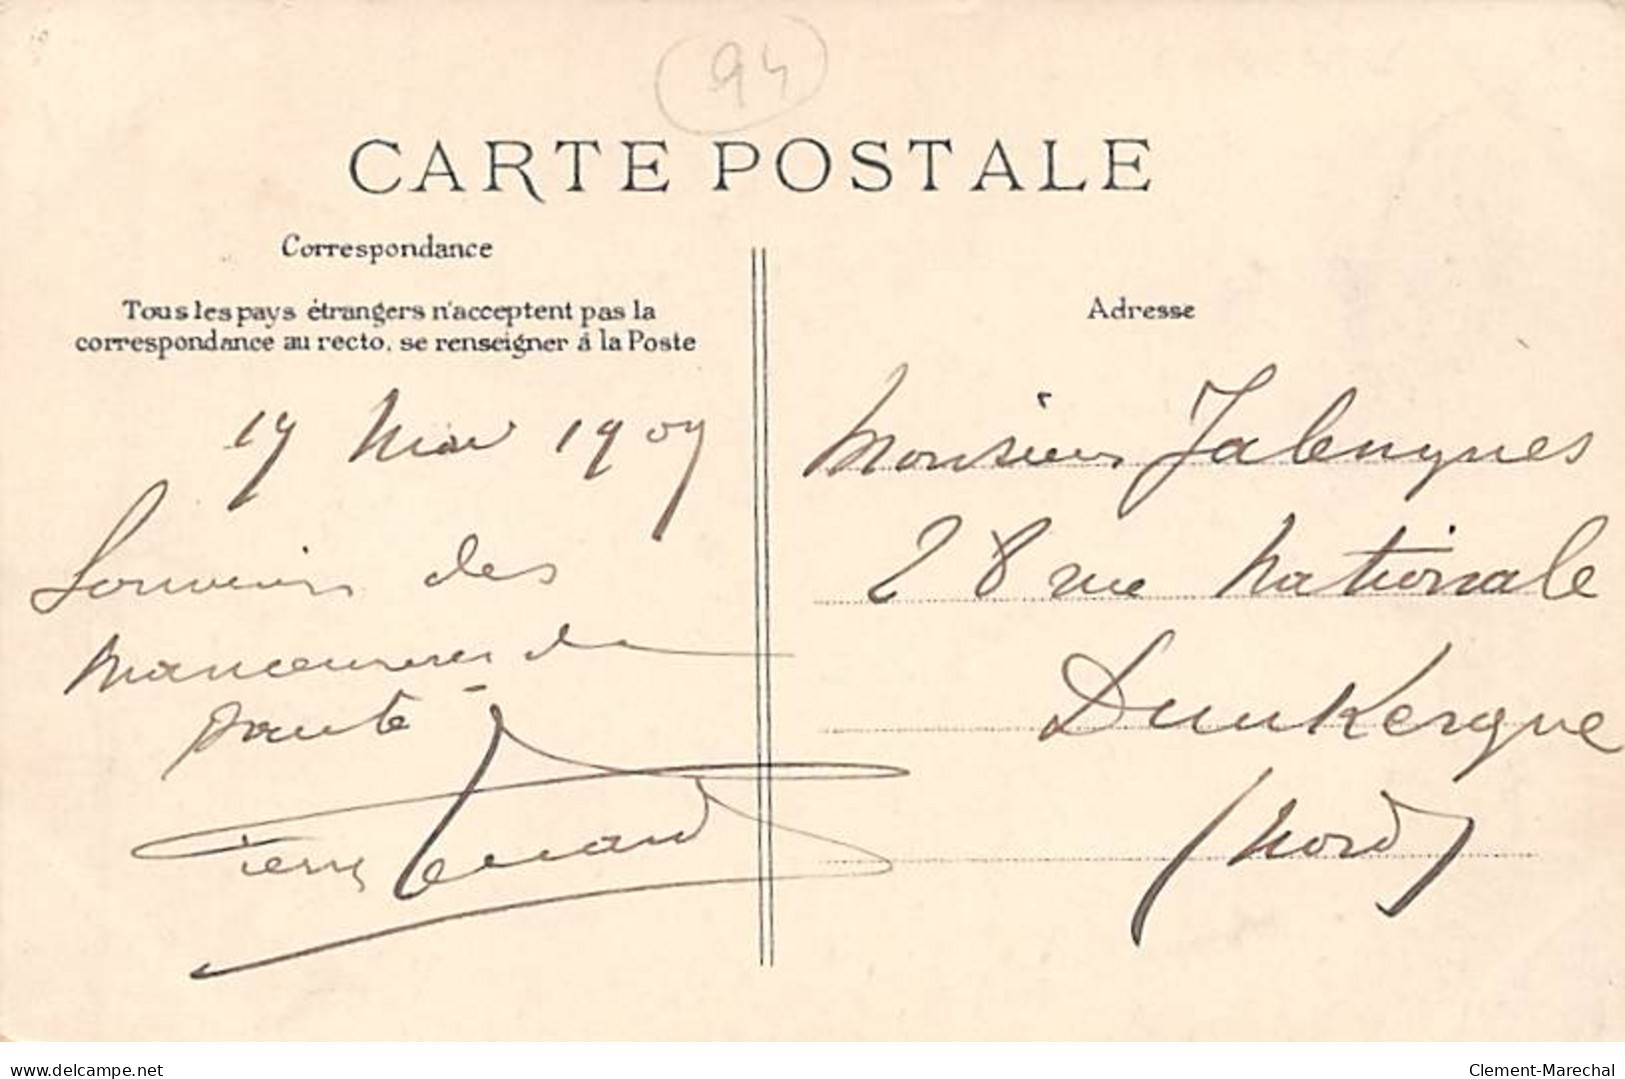 94
CARTE POSTALE
Correspondance
Tous les pays étrangers n'acceptent pas la
correspondance au recto, se renseigner à la Poste
17 Mai 1907
Souvenir des
manoeuvres de
santé
Pierre
Adresse
Monsieur
28 rue Nationale
Dunkerque
(Nord)
www.delcampe.net
Clement-Marechal